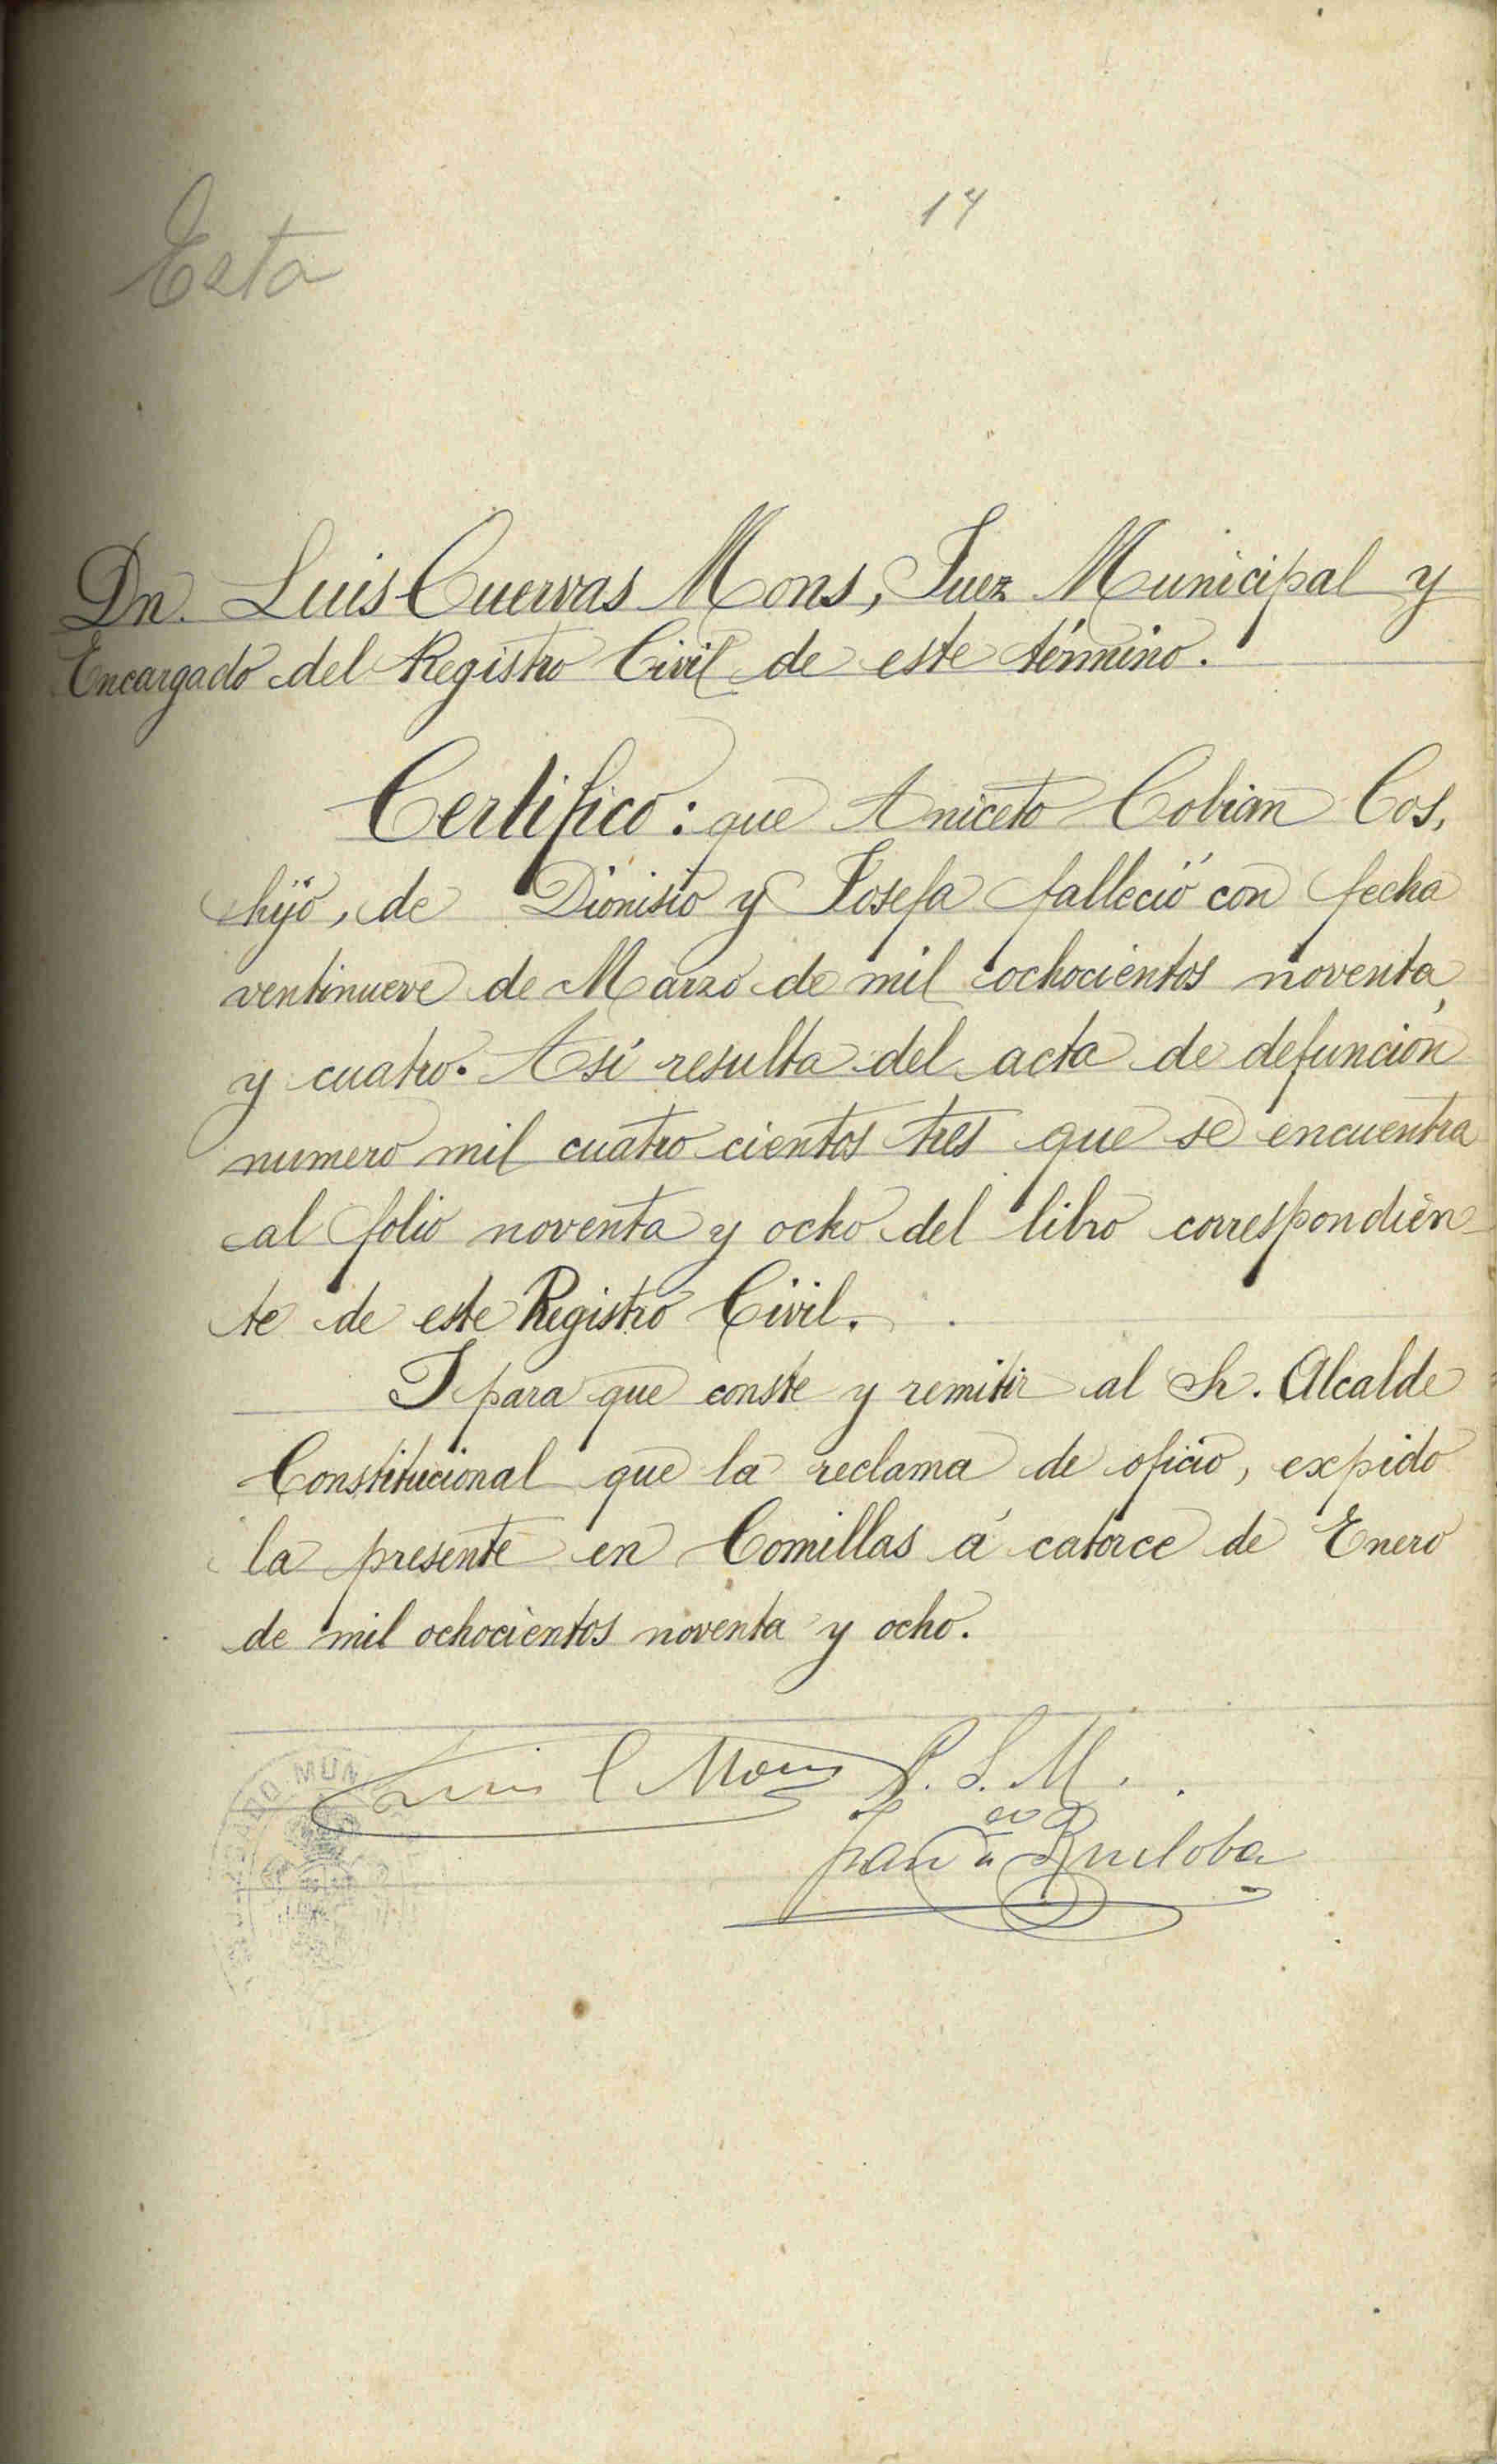 14
Esta
Dn. Luis Cuervas Mons, Juez Municipal y
Encargado del Registro Civil de este término.
Certifico: que Aniceto Cobian Cos,
hijo, de Dionisio y Josefa falleció con fecha
ventinueve de Marzo de mil ochocientos noventa
y cuatro. Así resulta del acta de defunción
numero mil cuatro cientos tres que se encuentra
al folio noventa y ocho del libro correspondien-
te de este Registro Civil.
Y para que conste y remitir al Sr. Alcalde
Constitucional que la reclama de oficio, expido
la presente en Comillas á catorce de Enero
de mil ochocientos noventa y ocho.
Luis C Mons P. S. M.
Ruiloba
JUZGADO MUN